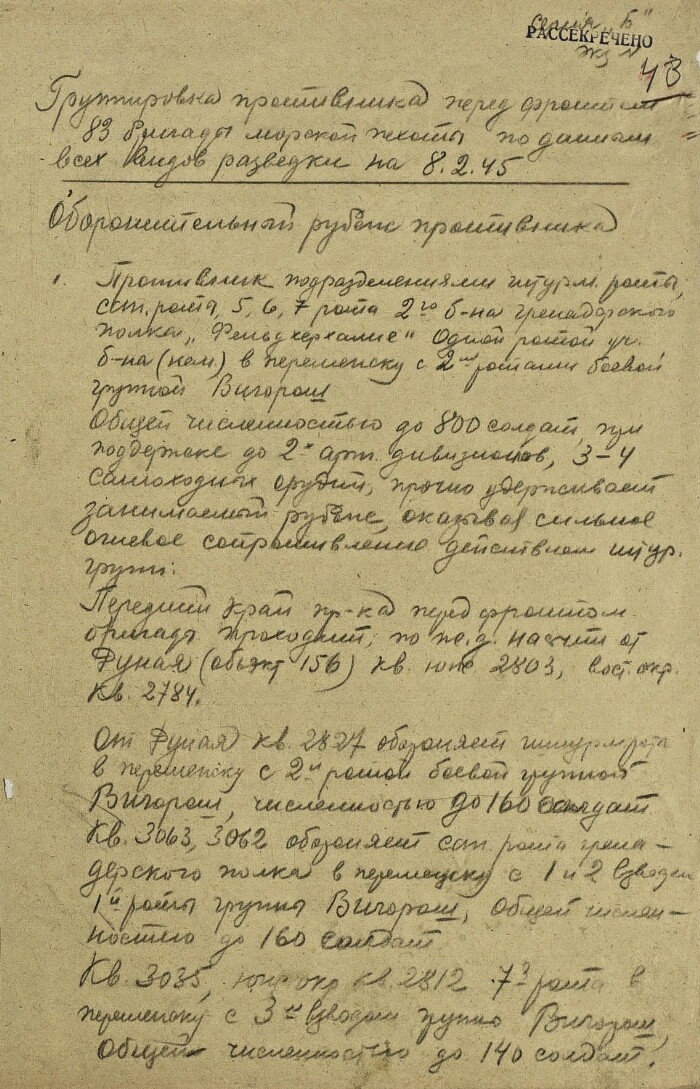 серия "Б"
РАССЕКРЕЧЕНО
43
Группировка противника перед фронтом
83 бригады морской пехоты по данным
всех видов разведки на 8.2.45
Оборонительный рубеж противника
1. Противник подразделениями штурм. роты,
сап. рота, 5, 6, 7 рота 2го б-на гренадерского
полка „Фельдхерхалле" одной ротой
б-на (нем.) в перемешку с 2мя ротами боевой
группой Вигорош
Общей численностью до 800 солдат, при
поддержке до 2х арт. дивизионов, 3-4
самоходных орудий, прочно удерживает
занимаемый рубеж, оказывая сильное
огневое сопротивление действиям штур.
групп.
Передний край пр-ка перед фронтом
бригады проходит, от
Дуная (объект 156) кв. юж. 2803, вост. окр.
кв. 2784.
От Дуная кв. 2827 обороняет штурм рота
в перемешку с 2й ротой боевой группой
Вигорош, численностью до 160 солдат
Кв. 3063, 3062 обороняет сап. рота грена-
дерского полка в перемешку с 1 и 2 взводом
1й роты группы Вигорош, общей числен-
ностью до 160 солдат
Кв. 3035, окр кв. 2812 7я рота в
перемешку с 3м взводом группы Вигорош,
Общей численностью до 140 солдат.